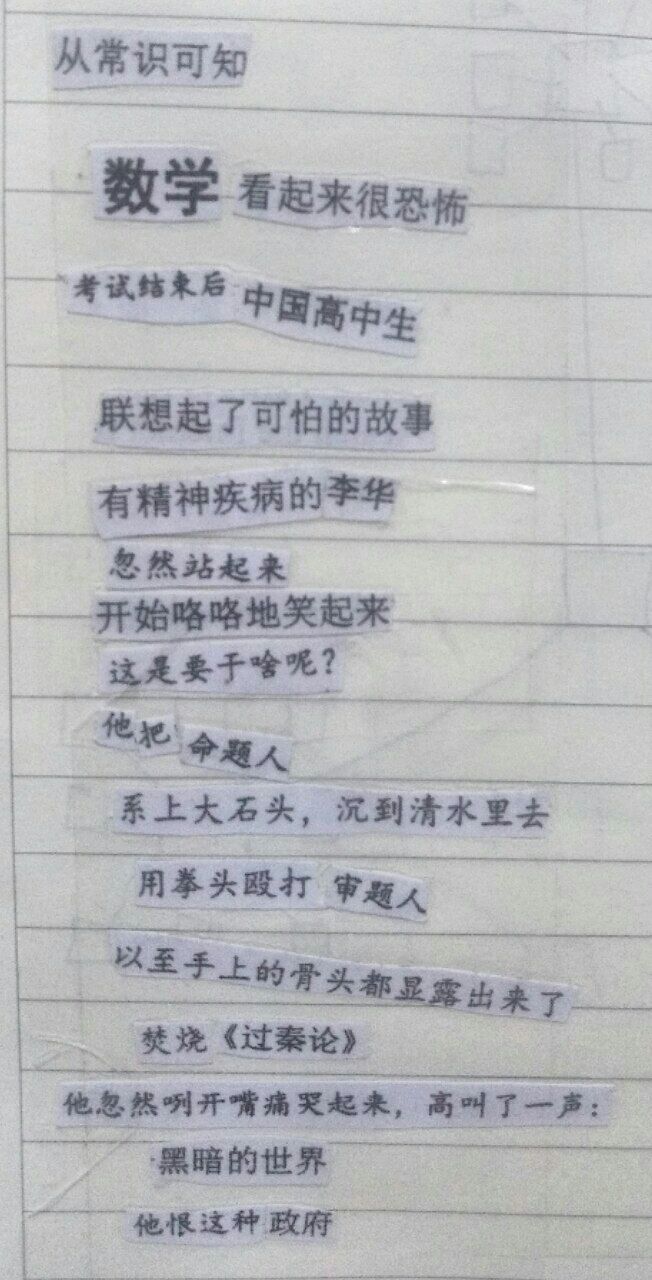 从常识可知
数学 看起来很恐怖
考试结束后 中国高中生
联想起了可怕的故事
有精神疾病的李华
忽然站起来
开始咯咯地笑起来
这是要干啥呢？
他把 命题人
系上大石头，沉到清水里去
用拳头殴打 审题人
以至手上的骨头都显露出来了
焚烧《过秦论》
他忽然咧开嘴痛哭起来，高叫了一声：
黑暗的世界
他恨这种 政府